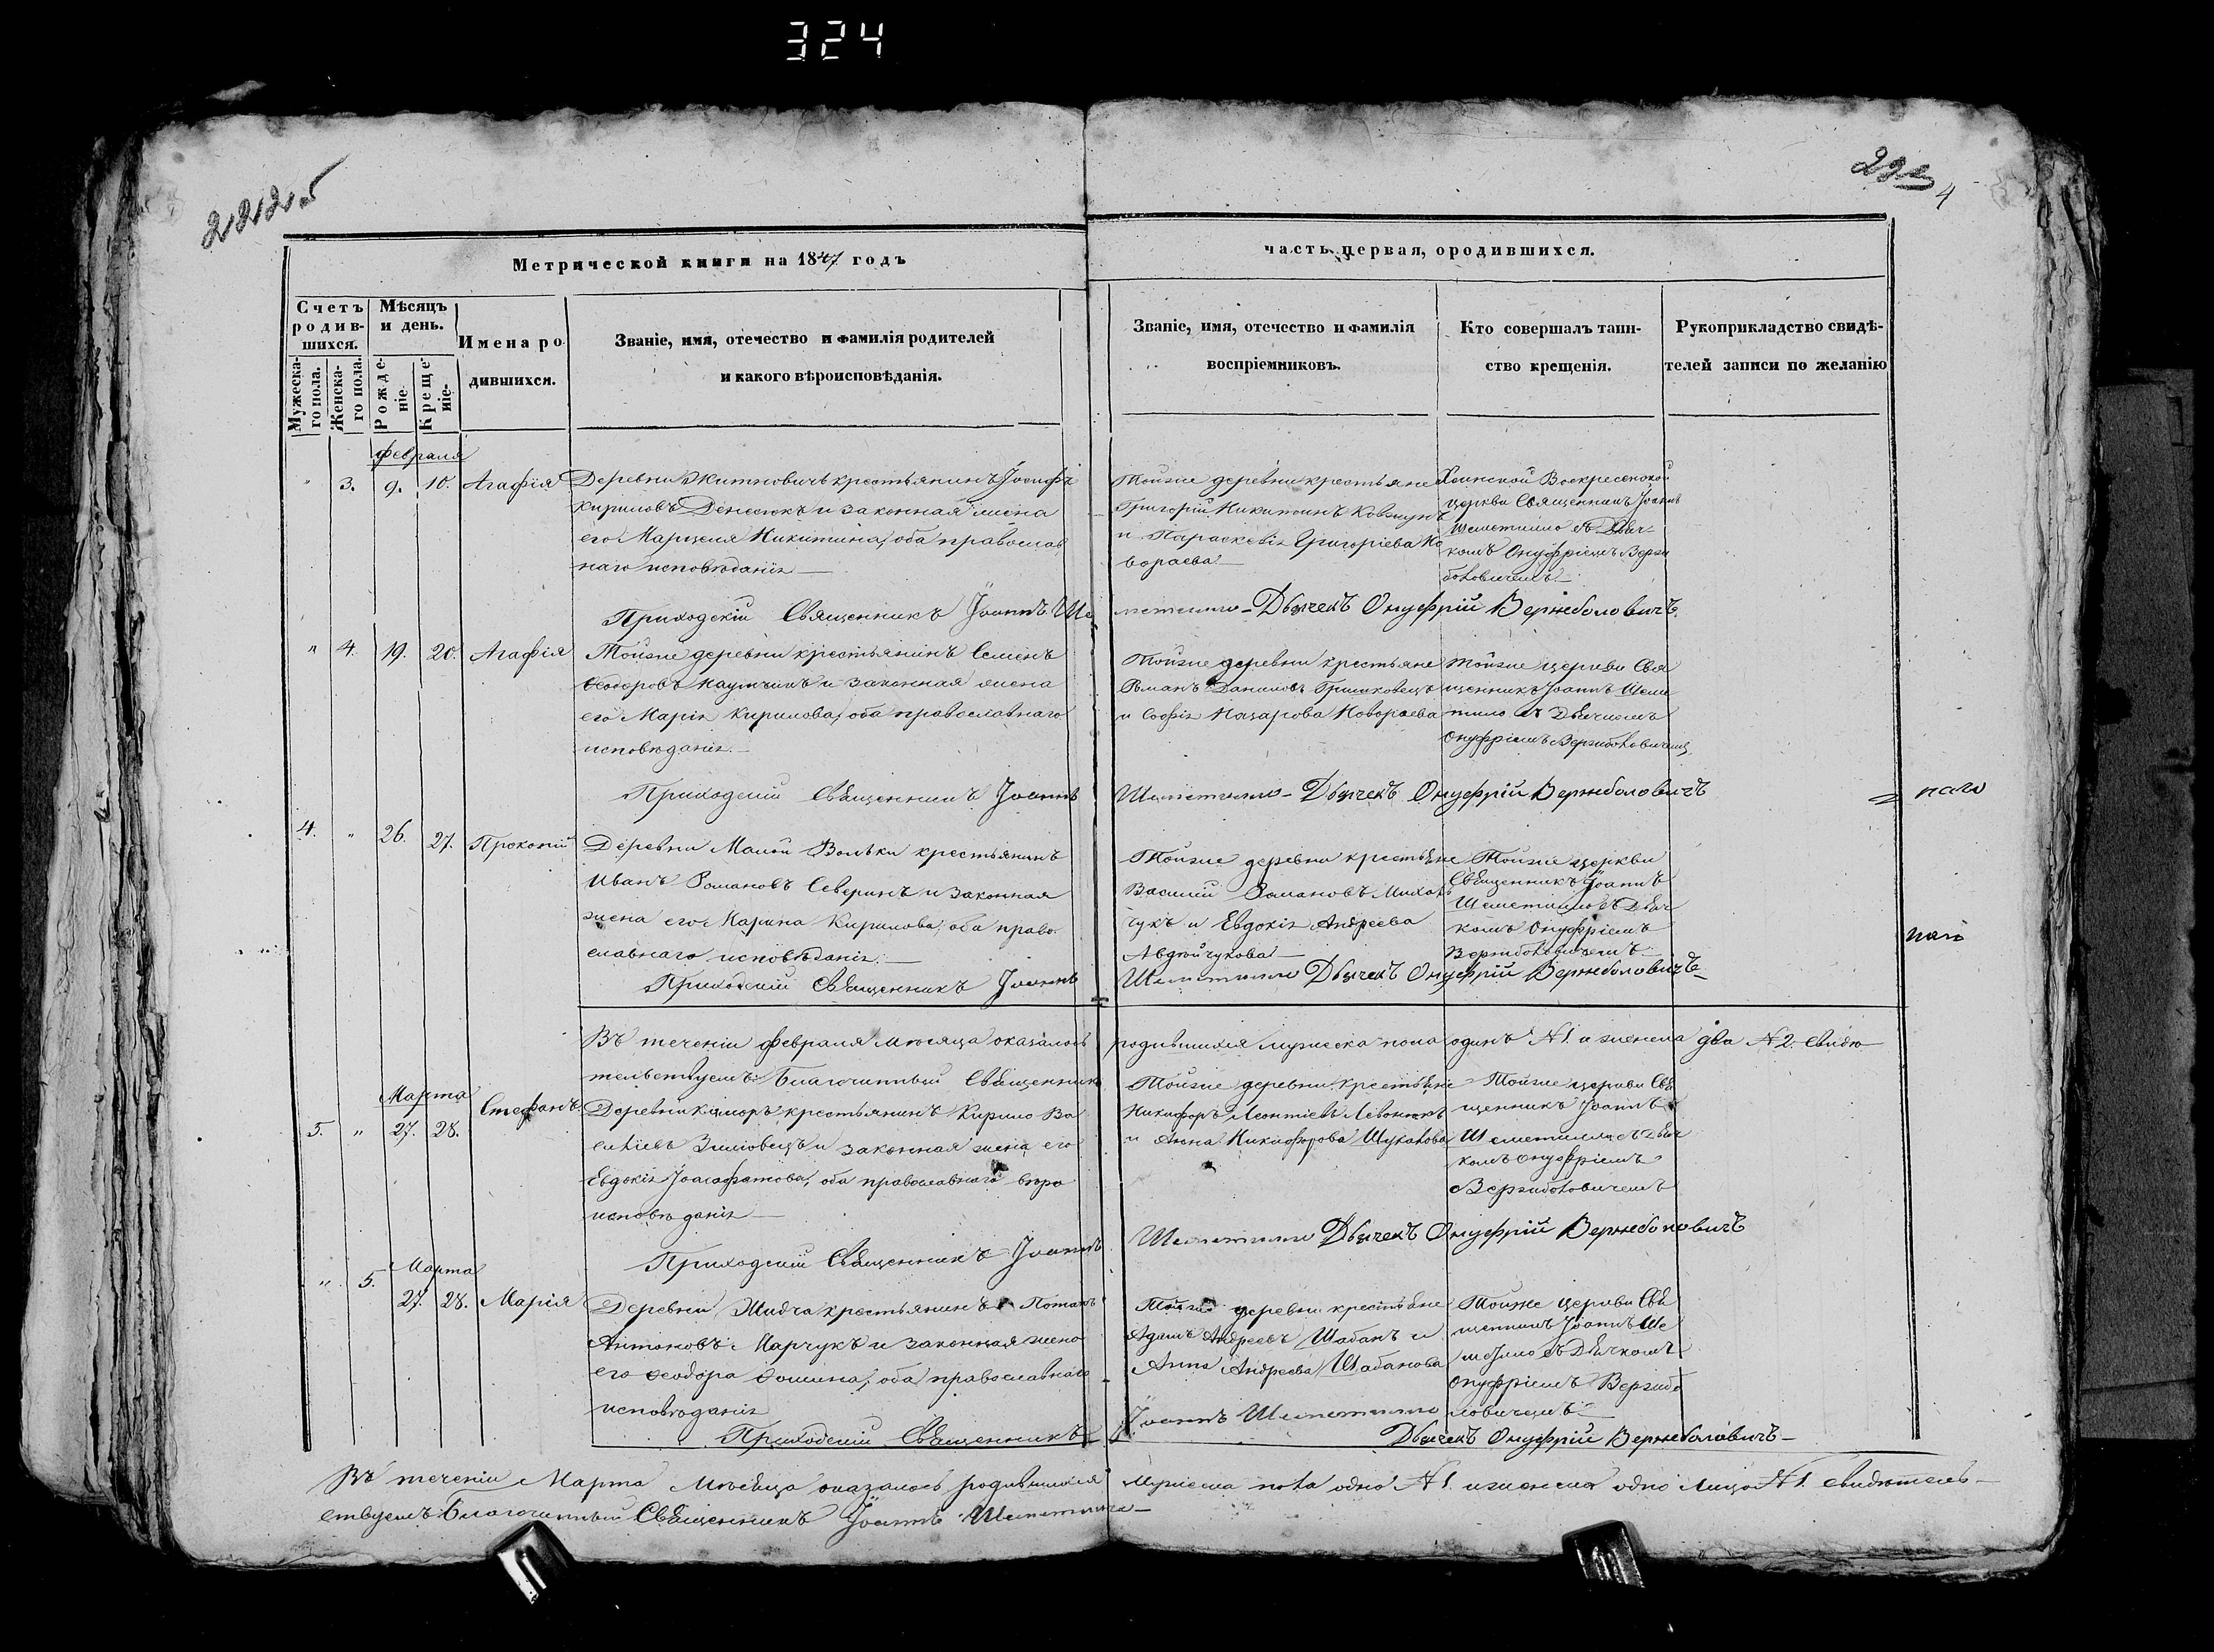 324
Метрической книги на 1847 годъ
часть первая, ородившихся.
Счетъ родив-шихся.
Мужеска-го пола.
Женска-го пола.
Мѣсяцъ и день.
Рожде-ніе.
Креще-ніе.
Имена ро-дившихся.
Званіе, имя, отечество и фамилія родителей
и какого вѣроисповѣданія.
Званіе, имя, отечество и фамилія
воспріемниковъ.
Кто совершалъ таин-
ство крещенія.
Рукоприкладство свидѣ-
телей записи по желанію
Февраля
" 3. 9. 10. Агафія
Деревни Житновичъ крестьянинъ Іосифъ
Кириловъ Денесюкъ и законная жена
его Марцеля Никитина, оба православ
наго исповѣданія
Тойже деревни крестьяне
Григорій Никитинъ Ковжунъ
и Параскевія Григоріева Но
вораева
Воскресенской
церкви Священникъ Іоаннъ
Шеметилло съ Дьяч-
комъ Онуфріемъ Вержи
боловичемъ
Приходскій Священникъ Іоаннъ Ше
метилло – Дьячекъ Онуфрій Вержеболовичъ
" 4. 19. 20. Агафія
Тойже деревни крестьянинъ Семенъ
Ѳеодоровъ и законная жена
его Марія Кирилова, оба православнаго
исповѣданія
Тойже деревни крестьяне
Романъ Даниловъ Гришковецъ
и Софія Назарова Новораева
Тойже церкви Свя
щенникъ Іоаннъ Шеме
тило съ Дьячкомъ
Онуфріемъ Вержиболовичемъ
Приходскій Священникъ Іоаннъ
Шеметилло – Дьячекъ Онуфрій Вержеболовичъ
4. " 26. 27. Прокопій
Деревни Малой Вольки крестьянинъ
Иванъ Романовъ Северинъ и законная
жена его Марина Кирилова, оба право
славнаго исповѣданія
Тойже деревни крестьяне
Василій Романовъ Михаль
чукъ и Евдокія Андреева
Авдѣйчукова
Тойже церкви
Священникъ Іоаннъ
Шеметилло съ Дьяч
комъ Онуфріемъ
Вержиболовичемъ
Приходскій Священникъ Іоаннъ
Шеметилло Дьячекъ Онуфрій Вержеболовичъ
Въ теченіи Февраля мѣсяца оказалось
родившихся мужеска пола одинъ №1. и женска два №2. свидѣ
тельствуемъ Благочинный Священникъ
Марта
5. " 27. 28. Стефанъ
крестьянинъ Кирило Ва
силіевъ Зимовецъ и законная жена его
Евдокія Іоасафатова, оба православнаго вѣро
исповѣданія
Тойже деревни крестьяне
Никифоръ Леонтіевъ Левонюкъ
и Анна Никифорова Шукалова
Тойже церкви Свя
щенникъ Іоаннъ
Шеметилло съ Дьяч
комъ Онуфріемъ
Вержиболовичемъ
Приходскій Священникъ Іоаннъ
Шеметилло Дьячекъ Онуфрій Вержеболовичъ
Марта
" 5. 27. 28. Марія
Деревни Жидча крестьянинъ Потапъ
Антоновъ Марчукъ и законная жена
его Ѳеодора Ѳомина, оба православнаго
исповѣданія
Тойже деревни крестьяне
Адамъ Андреевъ Шабанъ и
Анна Андреева Шабанова
Тойже церкви Свя
щенникъ Іоаннъ Ше
метило съ Дьячкомъ
Онуфріемъ Вержибо
ловичемъ
Приходскій Священникъ
Іоаннъ Шеметилло
Дьячекъ Онуфрій Вержеболовичъ
Въ теченіи Марта мѣсяца оказалось родившихся
мужеска пола одно №1. и женска одно лицо №1. свидѣтель
ствуемъ Благочинный Священникъ Іоаннъ Шеметилло